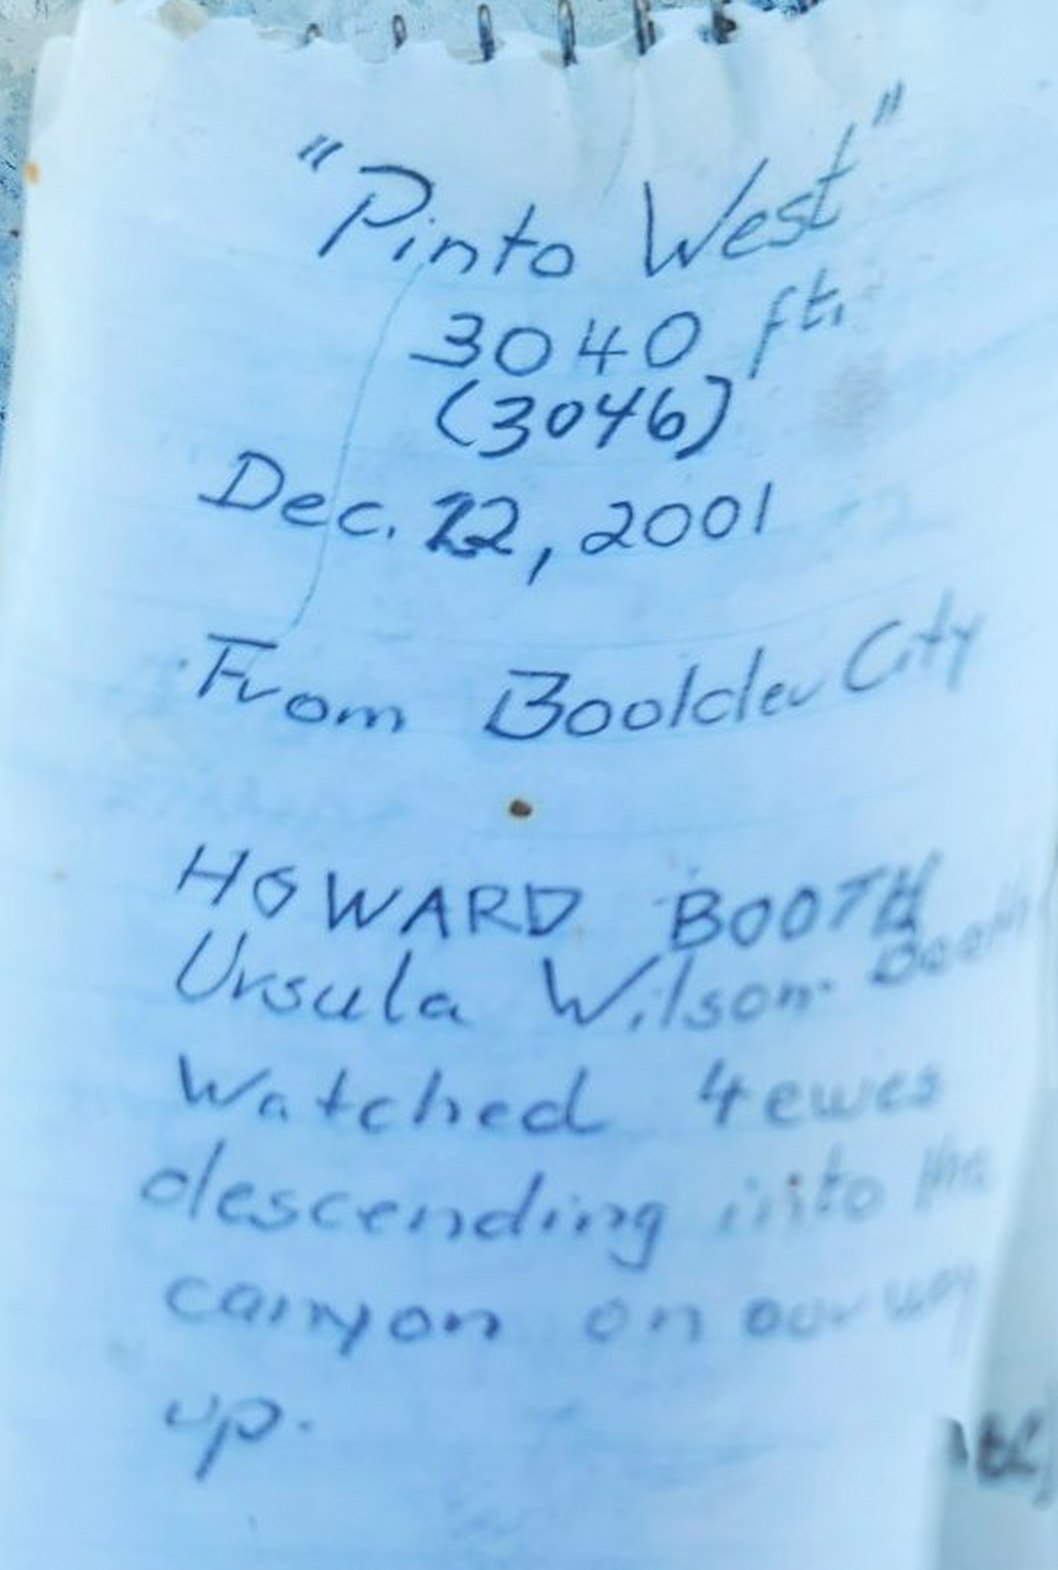 "Pinto West"
3040 ft.
(3046)
Dec. 22, 2001
From Boolder City
HOWARD BOOTH
Ursula Wilson-Booth
Watched 4 ewes
descending into the
canyon on our way
up.